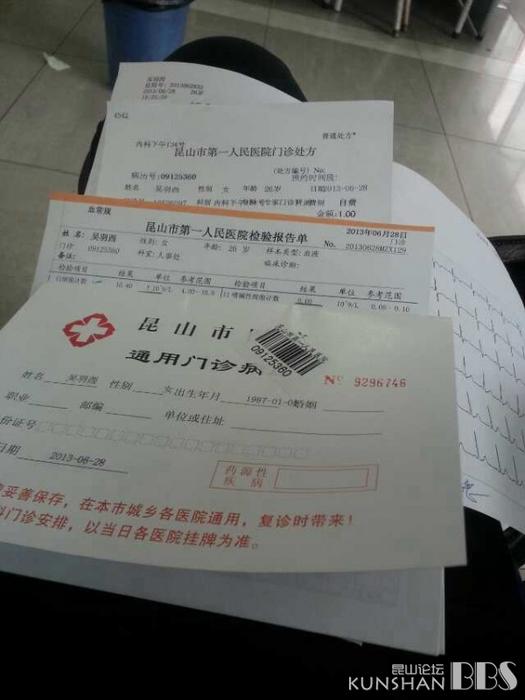 吴羽茜
2013/06/28 26岁
普通处方
内科下午124号
昆山市第一人民医院门诊处方
(处方编号) No:
病历号:09125360
预约时间段:
姓名 吴羽茜 性别 女 年龄 26岁 日期2013-06-28
自费
金额:1.00
血常规
昆山市第一人民医院检验报告单
2013年06月28日
姓名: 吴羽茜 性别: 女 年龄: 26 岁 样本类型: 血液 No. 20130628MZX129
门诊 09125360 科室: 人事处 临床诊断:
备注:
检验项目 结果 单位 参考范围 检验项目 结果 单位 参考范围
10.40 0.00 10^9/L 0.00 - 0.10
昆山市
通用门诊病
09125360
No 9296746
姓名 吴羽茜 性别 女出生年月 1987-01-0婚姻
职业 邮编 单位或住址
份证号
日期 2013-06-28
药源性
疾病
妥善保存，在本市城乡各医院通用，复诊时带来！
门诊安排，以当日各医院挂牌为准。
昆山论坛
KUNSHAN BBS